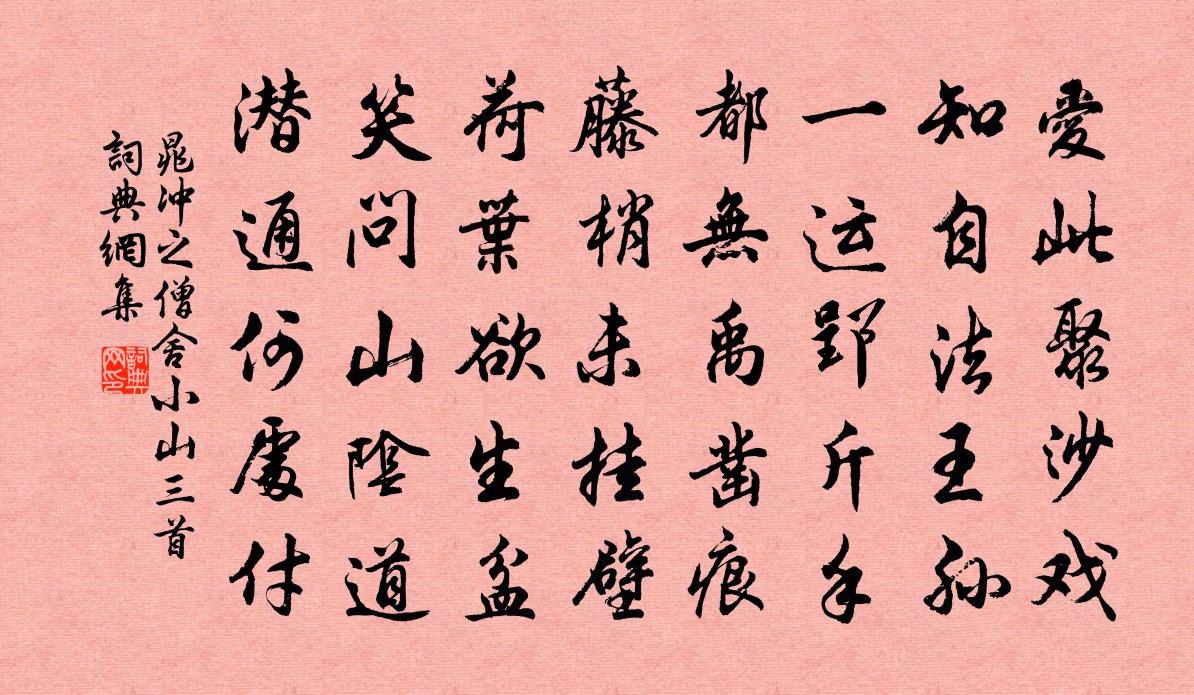 愛此聚沙戏
知自法王孙
一运郢斤手
都無禹凿痕
藤梢未挂壁
荷葉欲生盆
笑问山陰道
潜通何處村
晁冲之僧舍小山三首
詞典網集
詞典网印